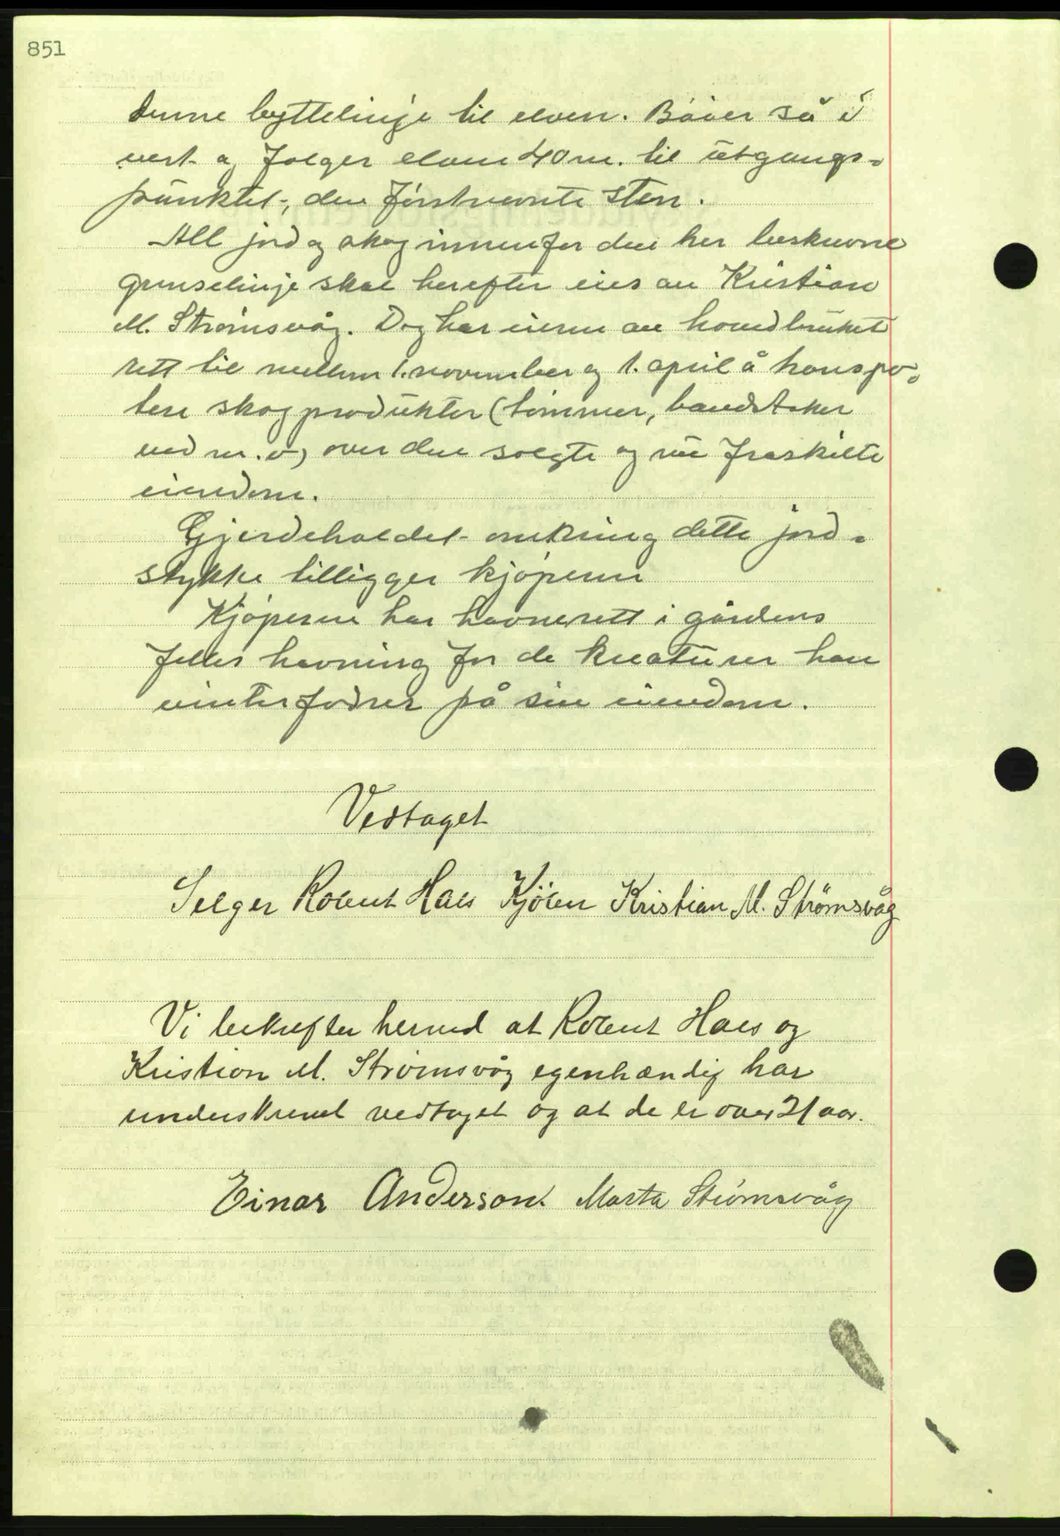 851
denne byttelinje til elven. Bøier så i
vest og følger elven 40 m. til utgangs-
punktet, den førstnevnte sten.
All jord og skog innenfor den her beskrevne
grenselinje skal herefter eies av Kristian
M. Strømsvåg. Dog har eieren av hovedbruket
rett til mellem 1. november og 1. april å transpo-
tere skogprodukter (tømmer, båndstaker
ved m.v) over den solgte og nu fraskilte
eiendom.
Gjerdeholdet omkring dette jord-
stykke tilligger kjøperen
Kjøperen har havnerett i gårdens
felles havning for de kreaturer han
vinterfødrer på sin eiendom.
Vedtaget
Selger Robert Haes Kjöber Kristian M. Strömsvåg
Vi bekrefter herved at Robert Haes og
Kristian M. Strömsvåg egenhændig har
underskrevet vedtaget og at de er over 21 aar.
Einar Anderson. Marta Strömsvåg